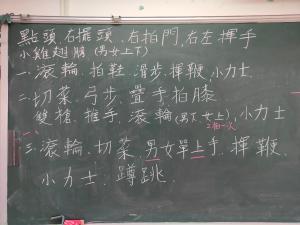 點頭、右擺頭、右拍門、右左揮手
小雞翅膀(男女上下)
一、滾輪、拍鞋、滑步、揮鞭、小力士
二、切菜、弓步、疊手拍膝
雙槍、推手、滾輪(男下女上)、小力士
2拍一次
三、滾輪、切菜、男女單上手、揮鞭
小力士、蹲跳